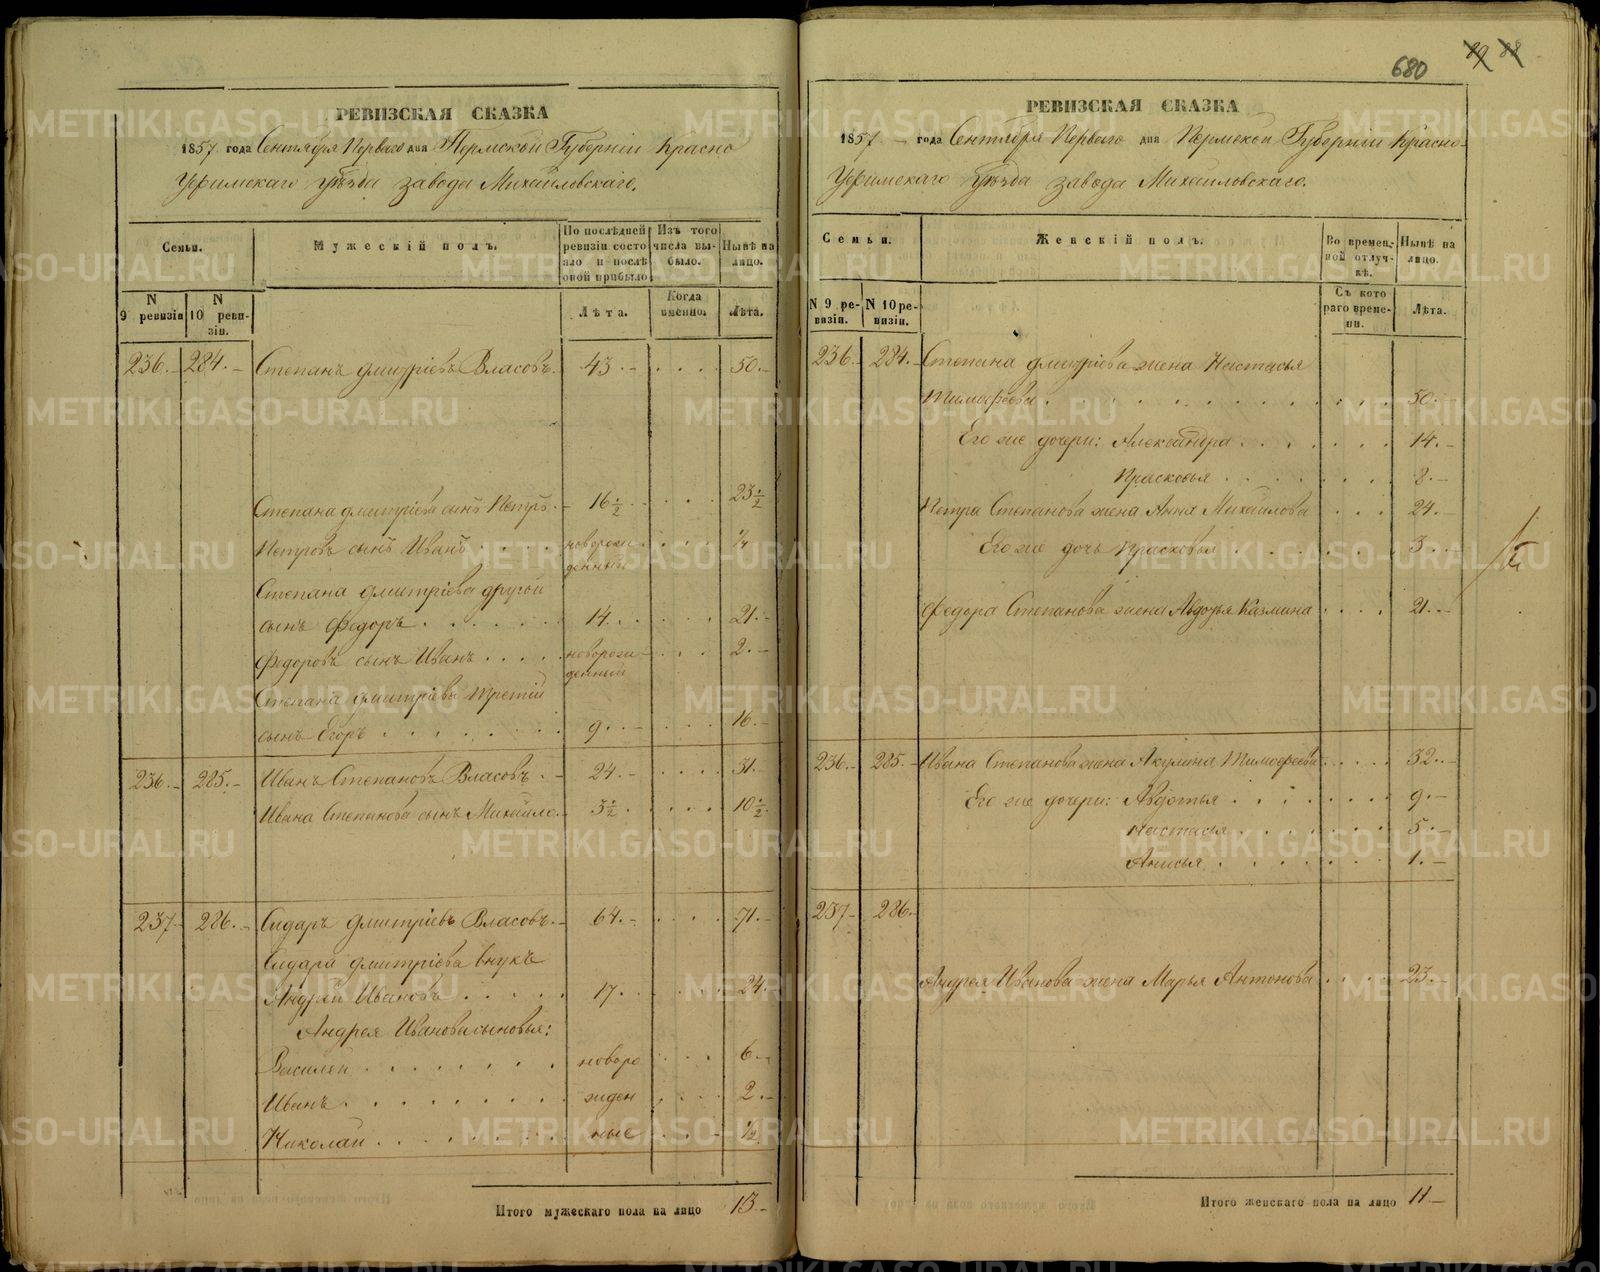 680 89 88
РЕВИЗСКАЯ СКАЗКА
1857 года Сентября Перваго дня Пермской Губерніи Красно
Уфимскаго Уѣзда завода Михайловскаго.
Семьи.
Мужескій полъ.
По послѣдней ревизіи состояло и послѣ оной прибыло
Изъ того числа выбыло.
Нынѣ на лицо.
N 9 ревизіи
N 10 ревизіи.
Лѣта.
Когда именно.
Лѣта.
236.- 284.- Степанъ Дмитріевъ Власовъ.- 43.- . . . . 50.-
Степана Дмитріева сынъ Петръ.- 16 1/2 . . . . 23 1/2
Петровъ сынъ Иванъ . . . . новорож- . . . . 1/4
денный
Степана Дмитріева другой
сынъ Федоръ . . . . . . 14. . . . . 21.-
Федоровъ сынъ Иванъ . . . . новорож- . . . 2.-
денный
Степана Дмитріева третій
сынъ Егоръ . . . . . . . . 9. . . . . 16.-
236.- 285.- Иванъ Степановъ Власовъ.- 24.- . . . . 31.-
Ивана Степанова сынъ Михайло.- 3 1/2 . . . . 10 1/2
237.- 286.- Сидаръ Дмитріевъ Власовъ.- 64.- . . . . 71.-
Сидара Дмитріева внукъ
Андрей Ивановъ . . . . . 17. . . . . 24.
Андрея Иванова сыновья:
Василей . . . . . . . . новоро . . . 6.-
Иванъ . . . . . . . . . жден . . . . 2.-
Николай . . . . . . . . . ные . . . . 1/2
Итого мужескаго пола на лицо 13.-
РЕВИЗСКАЯ СКАЗКА
1857 года Сентября Перваго дня Пермской Губерніи Красно-
Уфимскаго Уѣзда завода Михайловскаго.
Семьи.
Женскій полъ.
Во временной отлучкѣ.
Нынѣ на лицо.
N 9 ревизіи.
N 10 ревизіи.
Съ котораго времени.
Лѣта.
236.- 284.- Степана Дмитріева жена Настасья
Тимофѣева . . . . . . . . . . . . 50.-
Его же дочери: Александра . . . . . . . 14.-
Прасковья . . . . . . . . 8.-
Петра Степанова жена Анна Михайлова . . . 24.-
Его же дочь Прасковья . . . . . . . . 3.-
Федора Степанова жена Авдотья Казмина . . . . 21.-
236.- 285.- Ивана Степанова жена Акулина Тимофеева . . . . 32.-
Его же дочери: Авдотья . . . . . . . 9.-
Настасья . . . . . . . 5.-
Анисья . . . . . . . . 1.-
237- 286.-
Андрея Иванова жена Марья Антонова . . . . 23.-
Итого женскаго пола на лицо 11-
METRIKI.GASO-URAL.RU